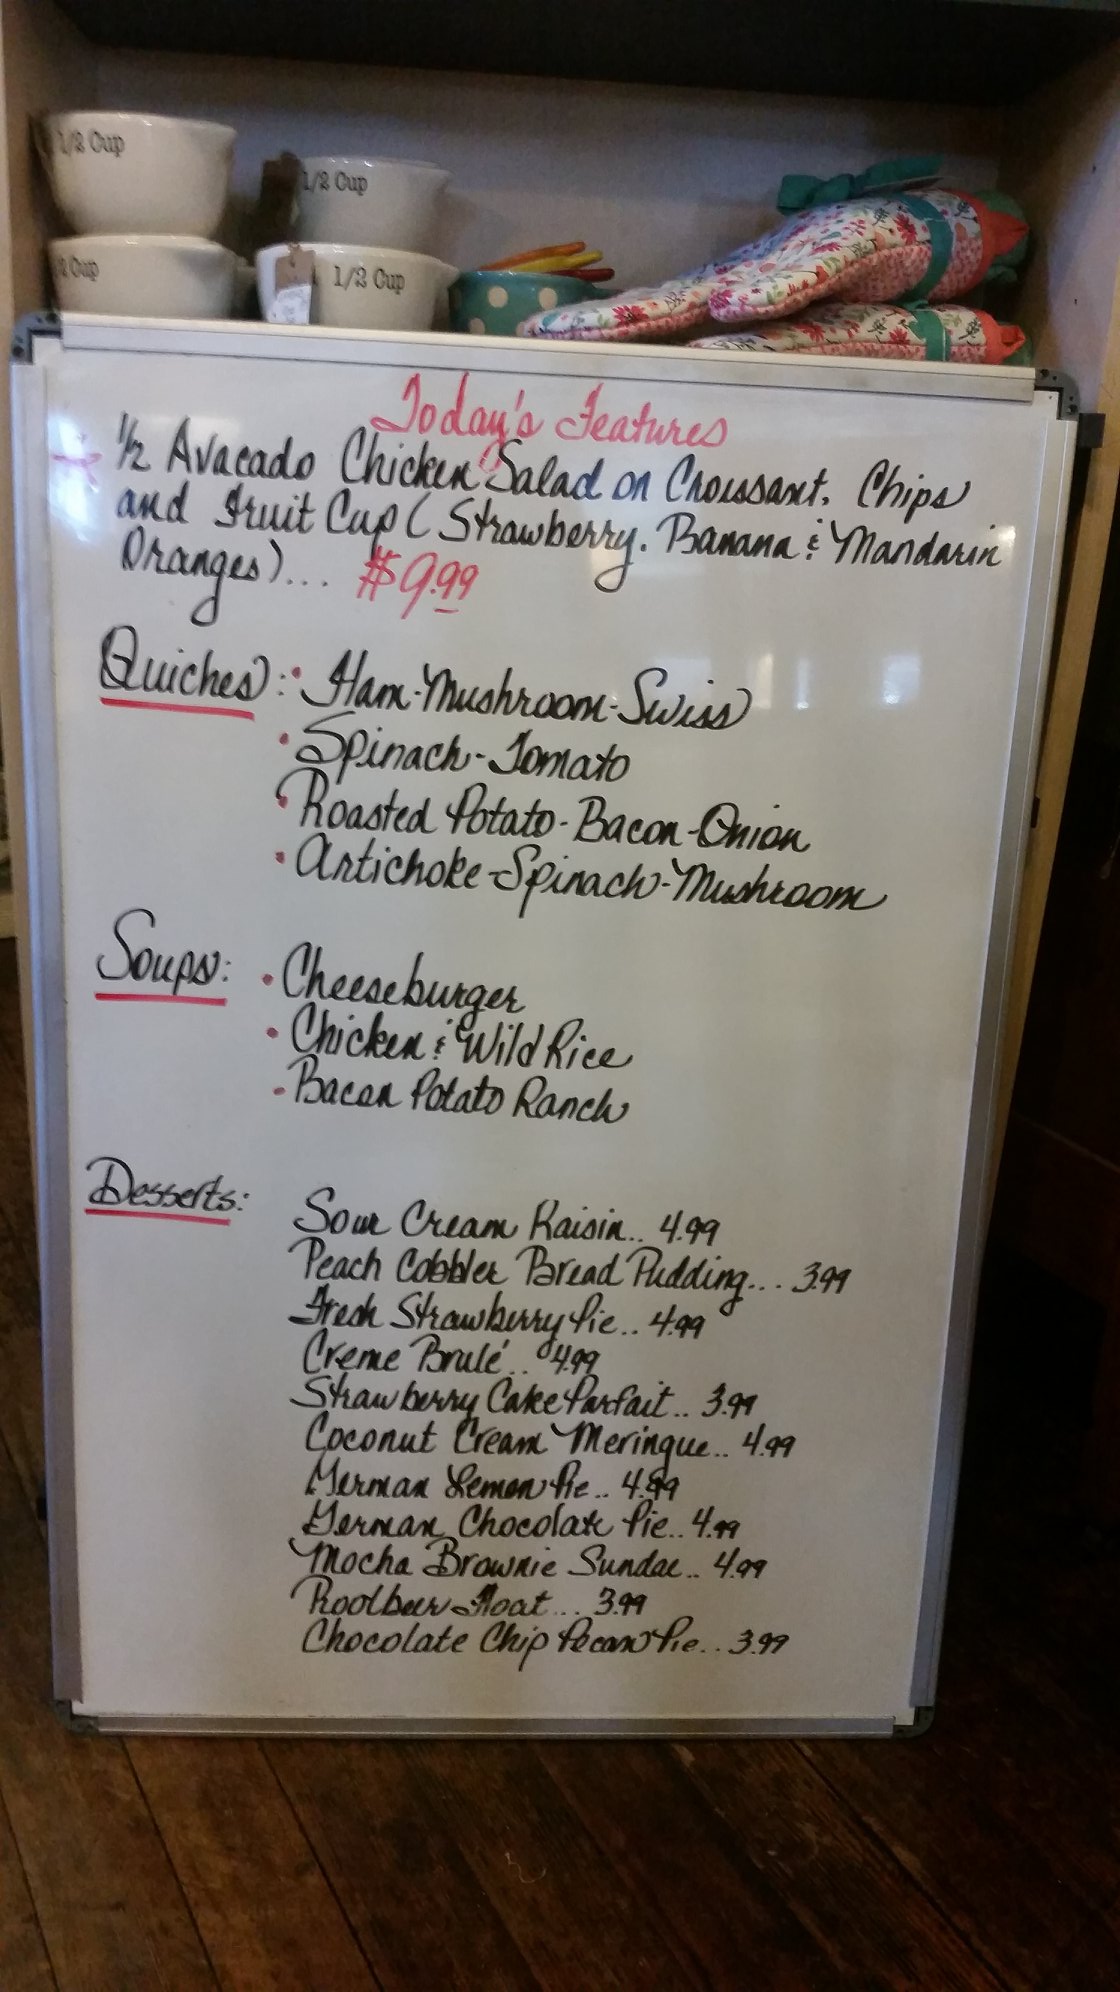 1/2 Cup
1/2 Cup
2 Cup
1/2 Cup
Today's Features
1/2 Avacado Chicken Salad on Croissant, Chips
and Fruit Cup (Strawberry, Banana & Mandarin
Oranges)... $9.99
Quiches: • Ham-Mushroom-Swiss
• Spinach-Tomato
• Roasted Potato-Bacon-Onion
• Artichoke-Spinach-Mushroom
Soups: • Cheeseburger
• Chicken & Wild Rice
• Bacon Potato Ranch
Desserts: Sour Cream Raisin.. 4.99
Peach Cobbler Bread Pudding... 3.99
Fresh Strawberry Pie.. 4.99
Creme Brulé.. 4.99
Strawberry Cake Parfait.. 3.99
Coconut Cream Meringue.. 4.99
German Lemon Pie.. 4.99
German Chocolate Pie.. 4.99
Mocha Brownie Sundae.. 4.99
Rootbeer Float... 3.99
Chocolate Chip Pecan Pie.. 3.99